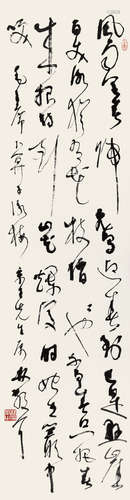 风雨送春归飞雪迎春到已是悬崖
百丈冰犹有花枝俏俏也不争春只把春
来报待到山花烂漫时她在丛中
笑 毛主席卜算子咏梅 先生属